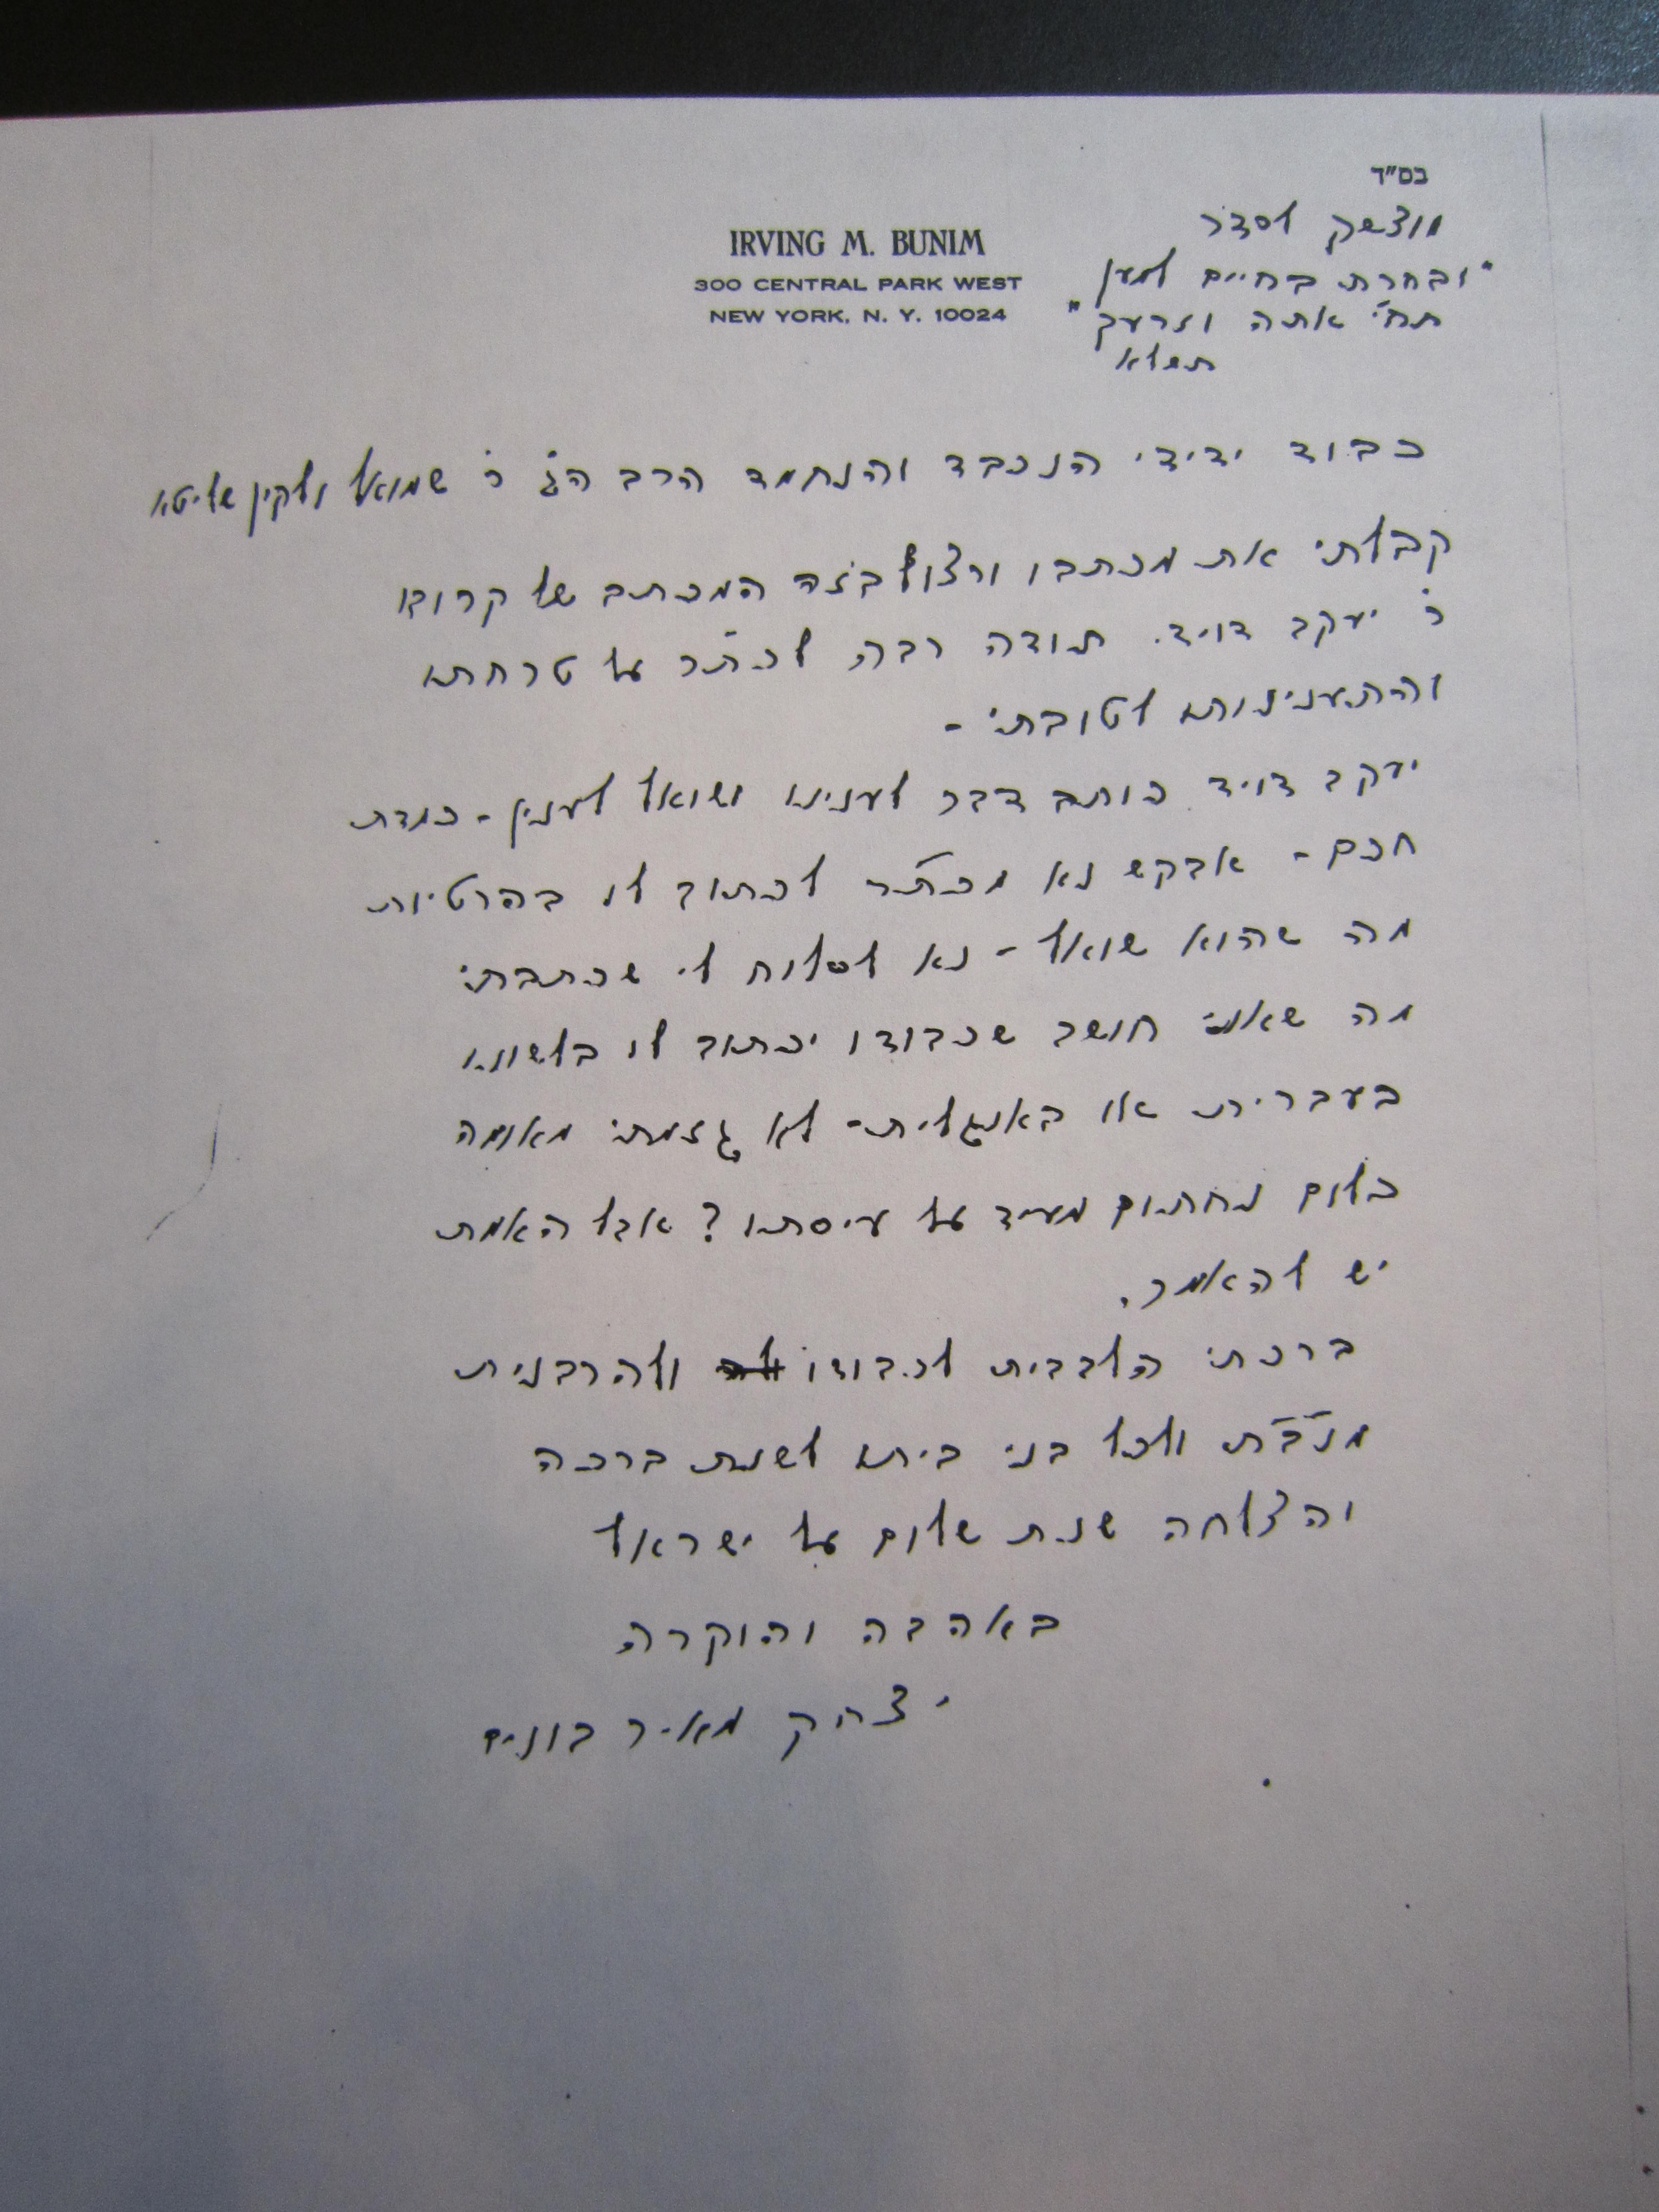 בס״ד
מוצשק לסדר
IRVING M. BUNIM
300 CENTRAL PARK WEST
NEW YORK, N. Y. 10024
"ובחרת בחיים למען
תחי' אתה וזרעך"
תשלא
כבוד ידידי הנכבד והנחמד הרב הג' ר' שמואל ולקין שליטא
קבלתי את מכתבו ורצוף בזה המכתב של קרובו
ר' יעקב דויד. תודה רבה לכת״ר על טרחתו
והתענינותו לטובתי -
יעקב דויד כותב דבר לענינו ושואל לענין - כמדת
חכם - אבקש נא מכת״ר לכתוב לו בפרטיות
מה שהוא שואל - נא לסלוח לי שכתבתי
מה שאני חושב שכבודו יכתוב לו בלשונו
בעברית או באנגלית - לא גזמתי מאומה
כלום נחתום מעיד על עיסתו? אבל האמת
יש להאמר.
ברכתי הלבבית לכבודו ולהרבנית
מנב״ת ולכל בני ביתו לשנת ברכה
והצלחה שנת שלום על ישראל
באהבה והוקרה
יצחק מאיר בונים